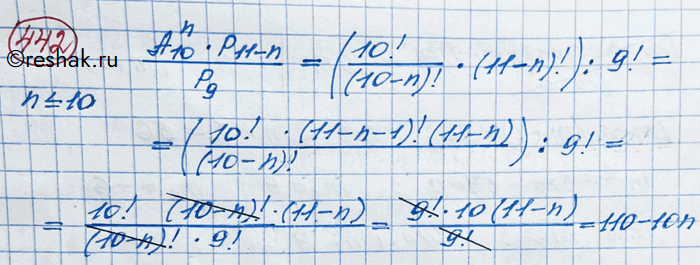 442
©reshak.ru
n≤10
A₁₀ⁿ · P₁₁₋ₙ / P₉ = (10! / (10-n)! · (11-n)!) : 9! =
= (10! · (11-n-1)! (11-n) / (10-n)!) : 9! =
= 10! (10-n)! · (11-n) / (10-n)! · 9! = 9! · 10 (11-n) / 9! = 110-10n